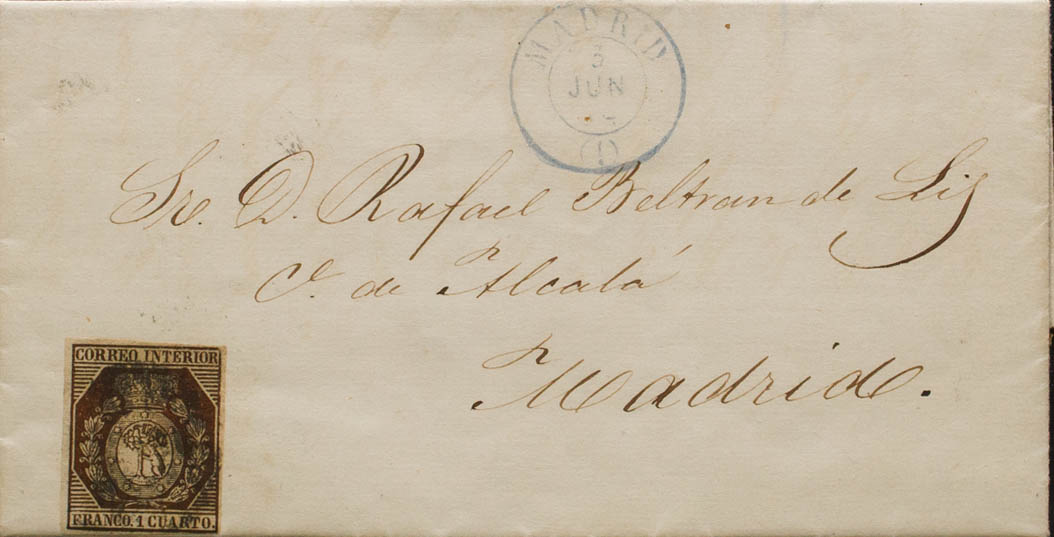 MADRID
3
JUN
(1)
Sr. D. Rafael Beltran de Lis
C. de Alcalá
Madrid.
CORREO INTERIOR
FRANCO. 1 CUARTO.